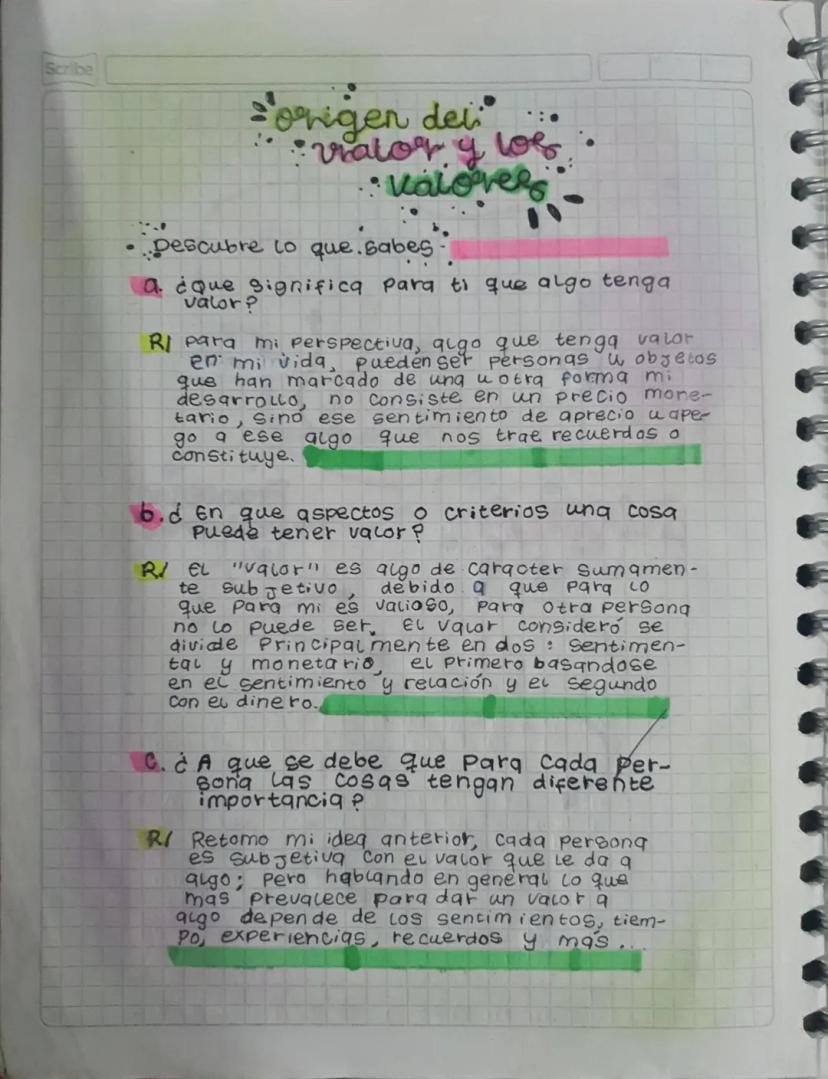 Scribe
origen del
valor y los
valores
Descubre lo que sabes
a. ¿que significa para ti que algo tenga
valor?
R/ para mi perspectiva, algo que tenga valor
en mi vida, pueden ser personas u objetos
que han marcado de una u otra forma mi
desarrollo, no consiste en un precio mone-
tario, sino ese sentimiento de aprecio u ape-
go a ese algo que nos trae recuerdos o
constituye.
b. ¿ En que aspectos o criterios una cosa
puede tener valor?
R/ El "valor" es algo de caracter sumamen-
te subjetivo, debido a que para lo
que para mi es valioso, para otra persona
no lo puede ser. El valor consideró se
divide principalmente en dos: sentimen-
tal y monetario, el primero basandose
en el sentimiento y relación y el segundo
con el dinero.
c. ¿ A que se debe que para cada per-
sona las cosas tengan diferente
importancia?
R/ Retomo mi idea anterior, cada persona
es subjetiva con el valor que le da a
algo; pero hablando en general lo que
mas prevalece para dar un valor a
algo depende de los sentimientos, tiem-
po, experiencias, recuerdos y más...